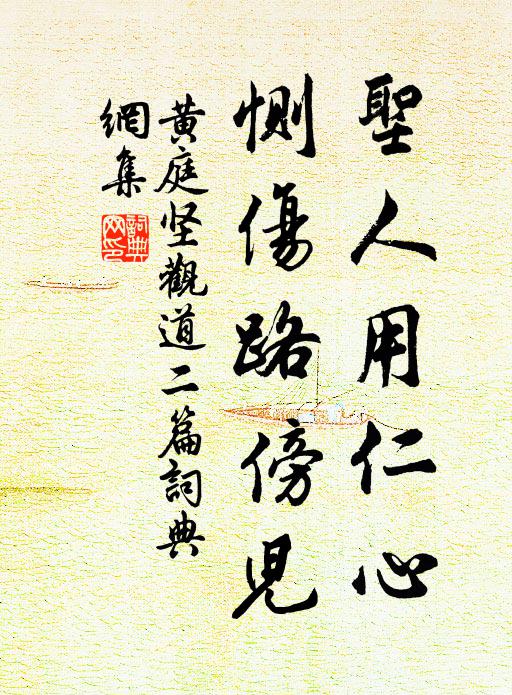 聖人用仁心
惻傷路傍兒
黄庭坚觀道二篇詞典
網集
詞典
网印